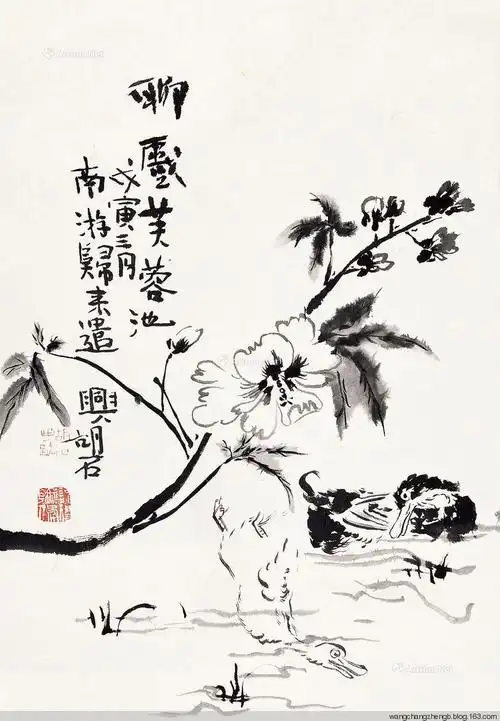 聊戲芙蓉池
戊寅三月
南游歸来遣
興 胡石
wangchangzhengb.blog.163.com